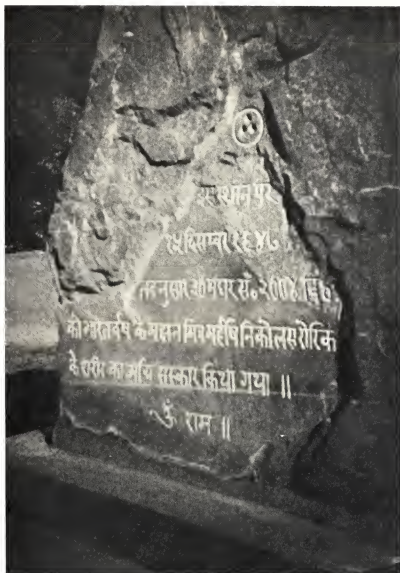 स्थान पर
१५ दिसम्बर १९४७
तदनुसार ३० मघर सं॰ २००४ वि॰
को भारतवर्ष के महान मित्र महर्षि निकोलस रोरिक
के शरीर का अग्नि संस्कार किया गया ॥
ॐ राम ॥